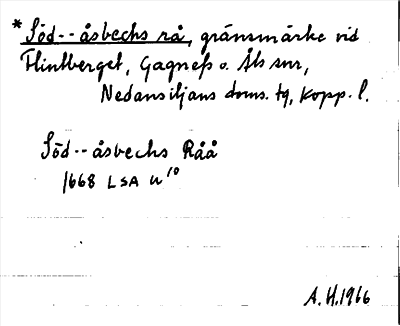 * Söd-- åsbechs rå, gränsmärke vid
Flintberget, Gagnefs o. Åls snr,
Nedansiljans doms. tg, Kopp. l.
Söd-- åsbechs Råå
1668 LSA U¹⁰
A.H. 1966